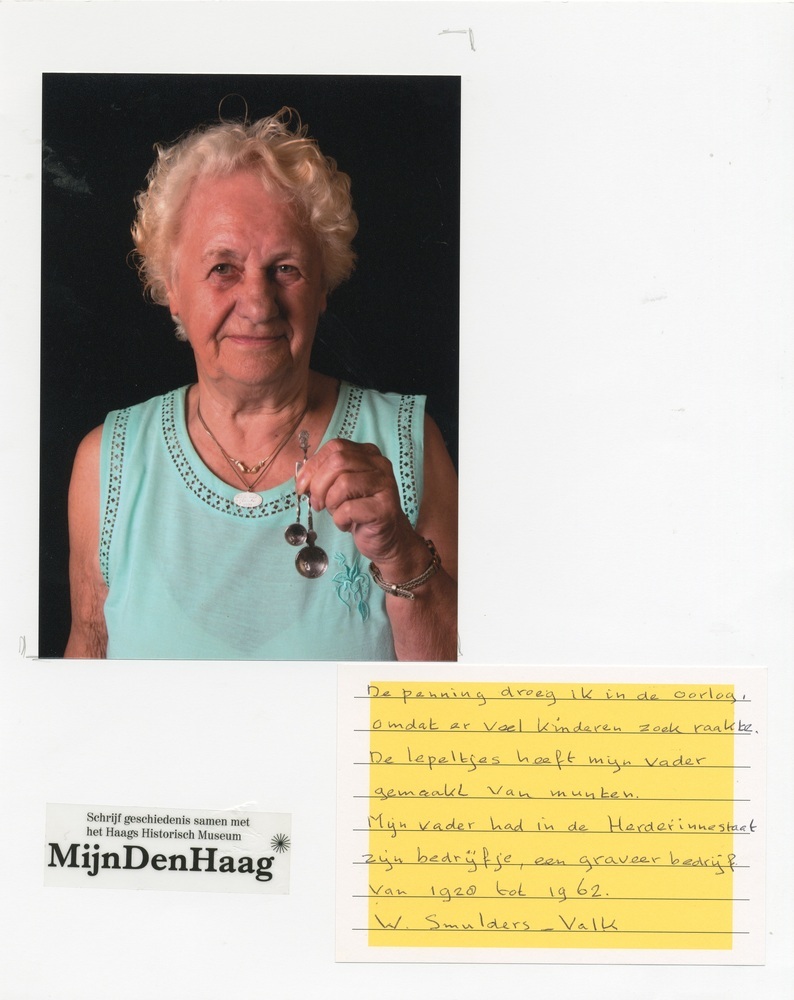 De penning droeg ik in de oorlog,
omdat er veel kinderen zoek raakte.
De lepeltjes heeft mijn vader
gemaakt van munten.
Mijn vader had in de Herderinnestaat
zijn bedrijfje, een graveer bedrijf
van 1920 tot 1962.
W. Smulders-Valk
Schrijf geschiedenis samen met
het Haags Historisch Museum
MijnDenHaag